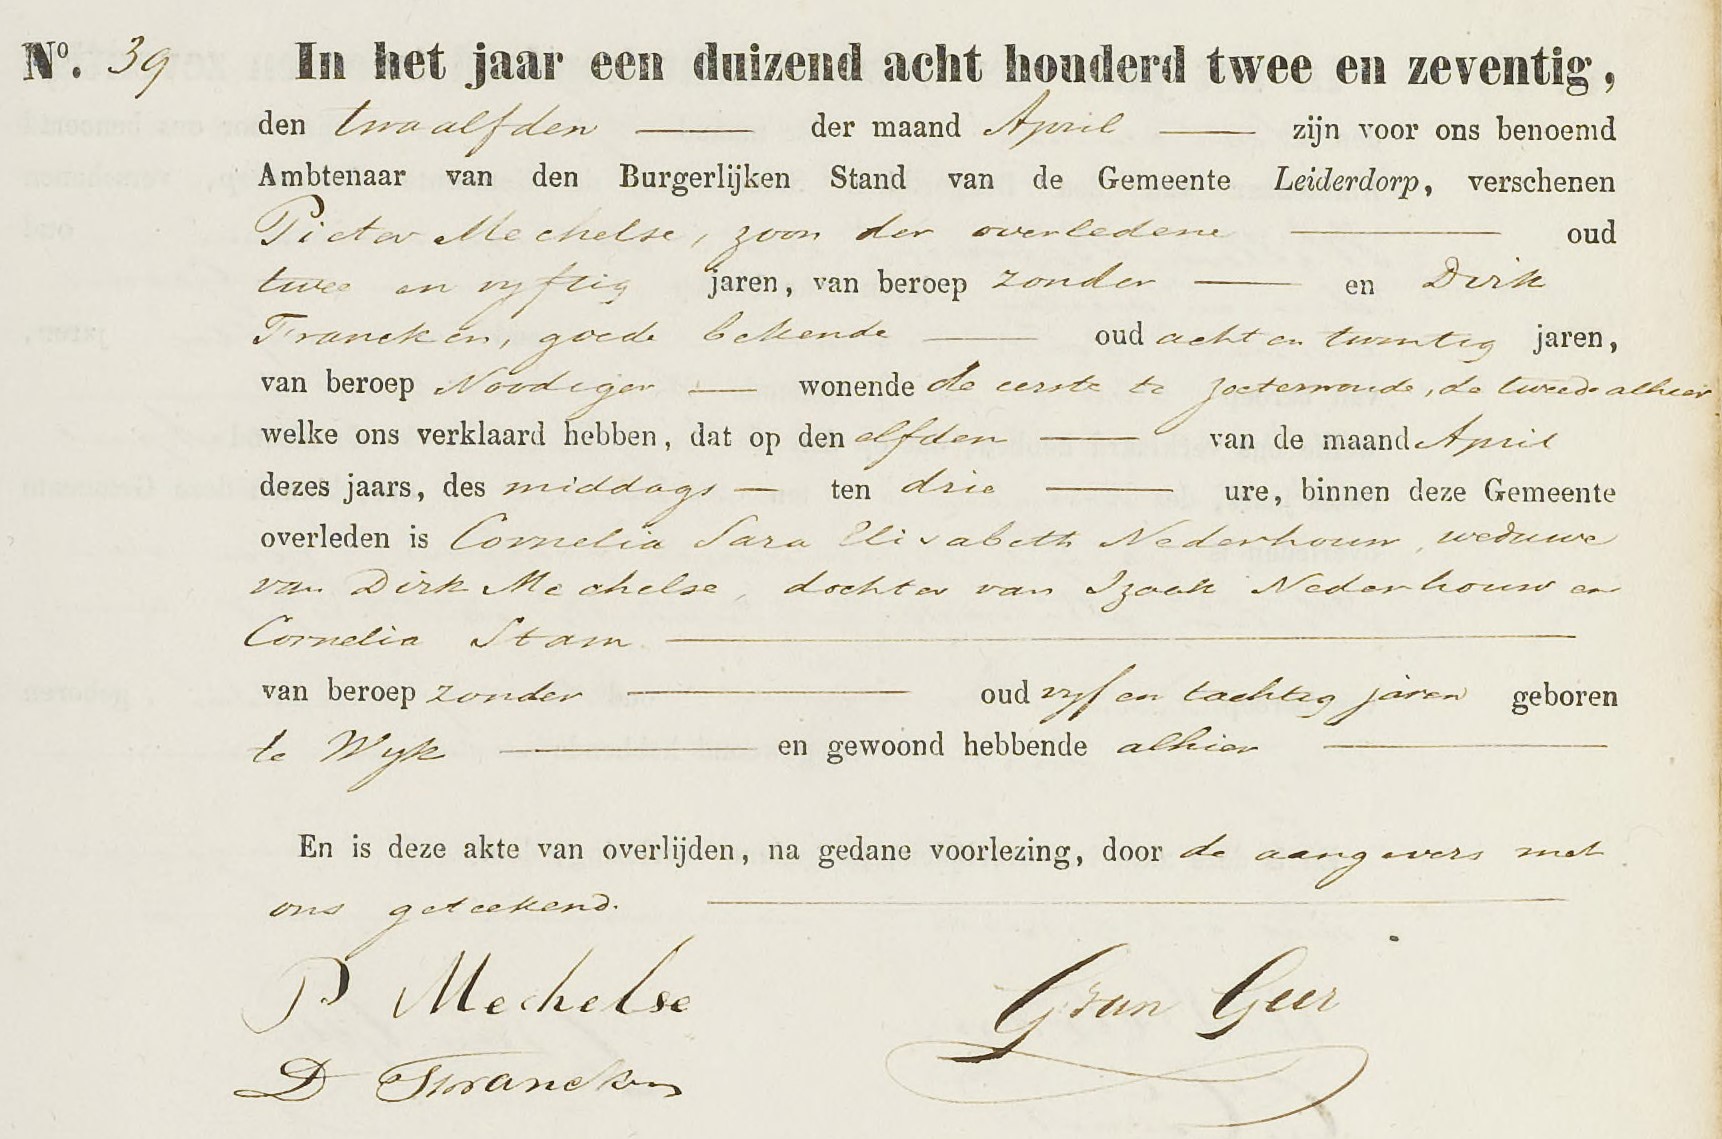 Nº. 39 In het jaar een duizend acht honderd twee en zeventig,
den twaalfden der maand April zijn voor ons benoemd
Ambtenaar van den Burgerlijken Stand van de Gemeente Leiderdorp, verschenen
Pieter Mechelse, zoon der overledene oud
twee en vyftig jaren, van beroep zonder en Dirk
Francken, goede bekende oud acht en twintig jaren,
van beroep Noodiger wonende de eerste te Zoeterwoude, de tweede alhier
welke ons verklaard hebben, dat op den elfden van de maand April
dezes jaars, des middags ten drie ure, binnen deze Gemeente
overleden is Cornelia Sara Elisabeth Nederhouw, weduwe
van Dirk Mechelse, dochter van Izaak Nederhouw en
Cornelia Stam
van beroep zonder oud vyf en tachtig jaren geboren
te Wyk en gewoond hebbende alhier
En is deze akte van overlijden, na gedane voorlezing, door de aangevers met
ons geteekend.
P Mechelse
G van Geer
D Francken